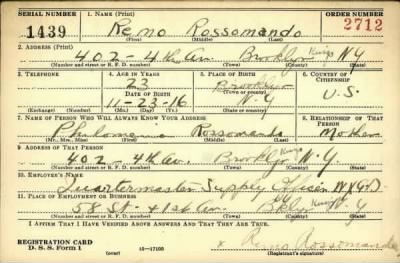 SERIAL NUMBER 1. NAME (Print) ORDER NUMBER
1439 Remo Rossomando 2712
(First) (Middle) (Last)
2. ADDRESS (Print)
402-4th Av. Brooklyn Kings N.Y.
(Number and street or R. F. D. number) (Town) (County) (State)
3. TELEPHONE 4. AGE IN YEARS 5. PLACE OF BIRTH 6. COUNTRY OF CITIZENSHIP
23 Brooklyn
DATE OF BIRTH (Town or county) U.S.
11-23-16 N.Y.
(Exchange) (Number) (Mo.) (Day) (Yr.) (State or country)
7. NAME OF PERSON WHO WILL ALWAYS KNOW YOUR ADDRESS 8. RELATIONSHIP OF THAT PERSON
Rossomando Mother
(Mr., Mrs., Miss) (First) (Middle) (Last)
9. ADDRESS OF THAT PERSON
402-4th Av. Brooklyn Kings N.Y.
(Number and street or R. F. D. number) (Town) (County) (State)
10. EMPLOYER'S NAME
Quartermaster Supply Officer
11. PLACE OF EMPLOYMENT OR BUSINESS
58 St + 1st Av. Bklyn Kings N.Y.
(Number and street or R. F. D. number) (Town) (County) (State)
I AFFIRM THAT I HAVE VERIFIED ABOVE ANSWERS AND THAT THEY ARE TRUE.
REGISTRATION CARD
D. S. S. Form 1 16-17105 x Remo Rossomando
(Registrant's signature)